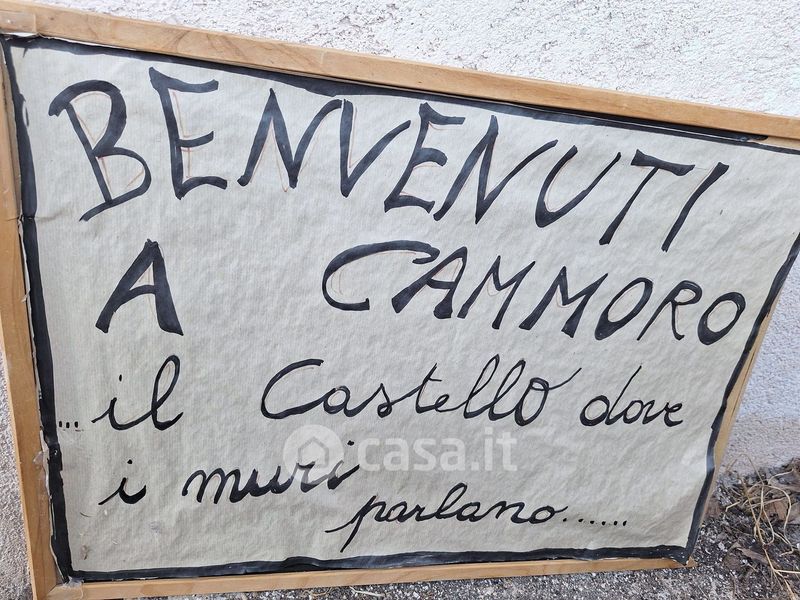 BENVENUTI
A CAMMORO
...il Castello dove
i muri
parlano......
casa.it